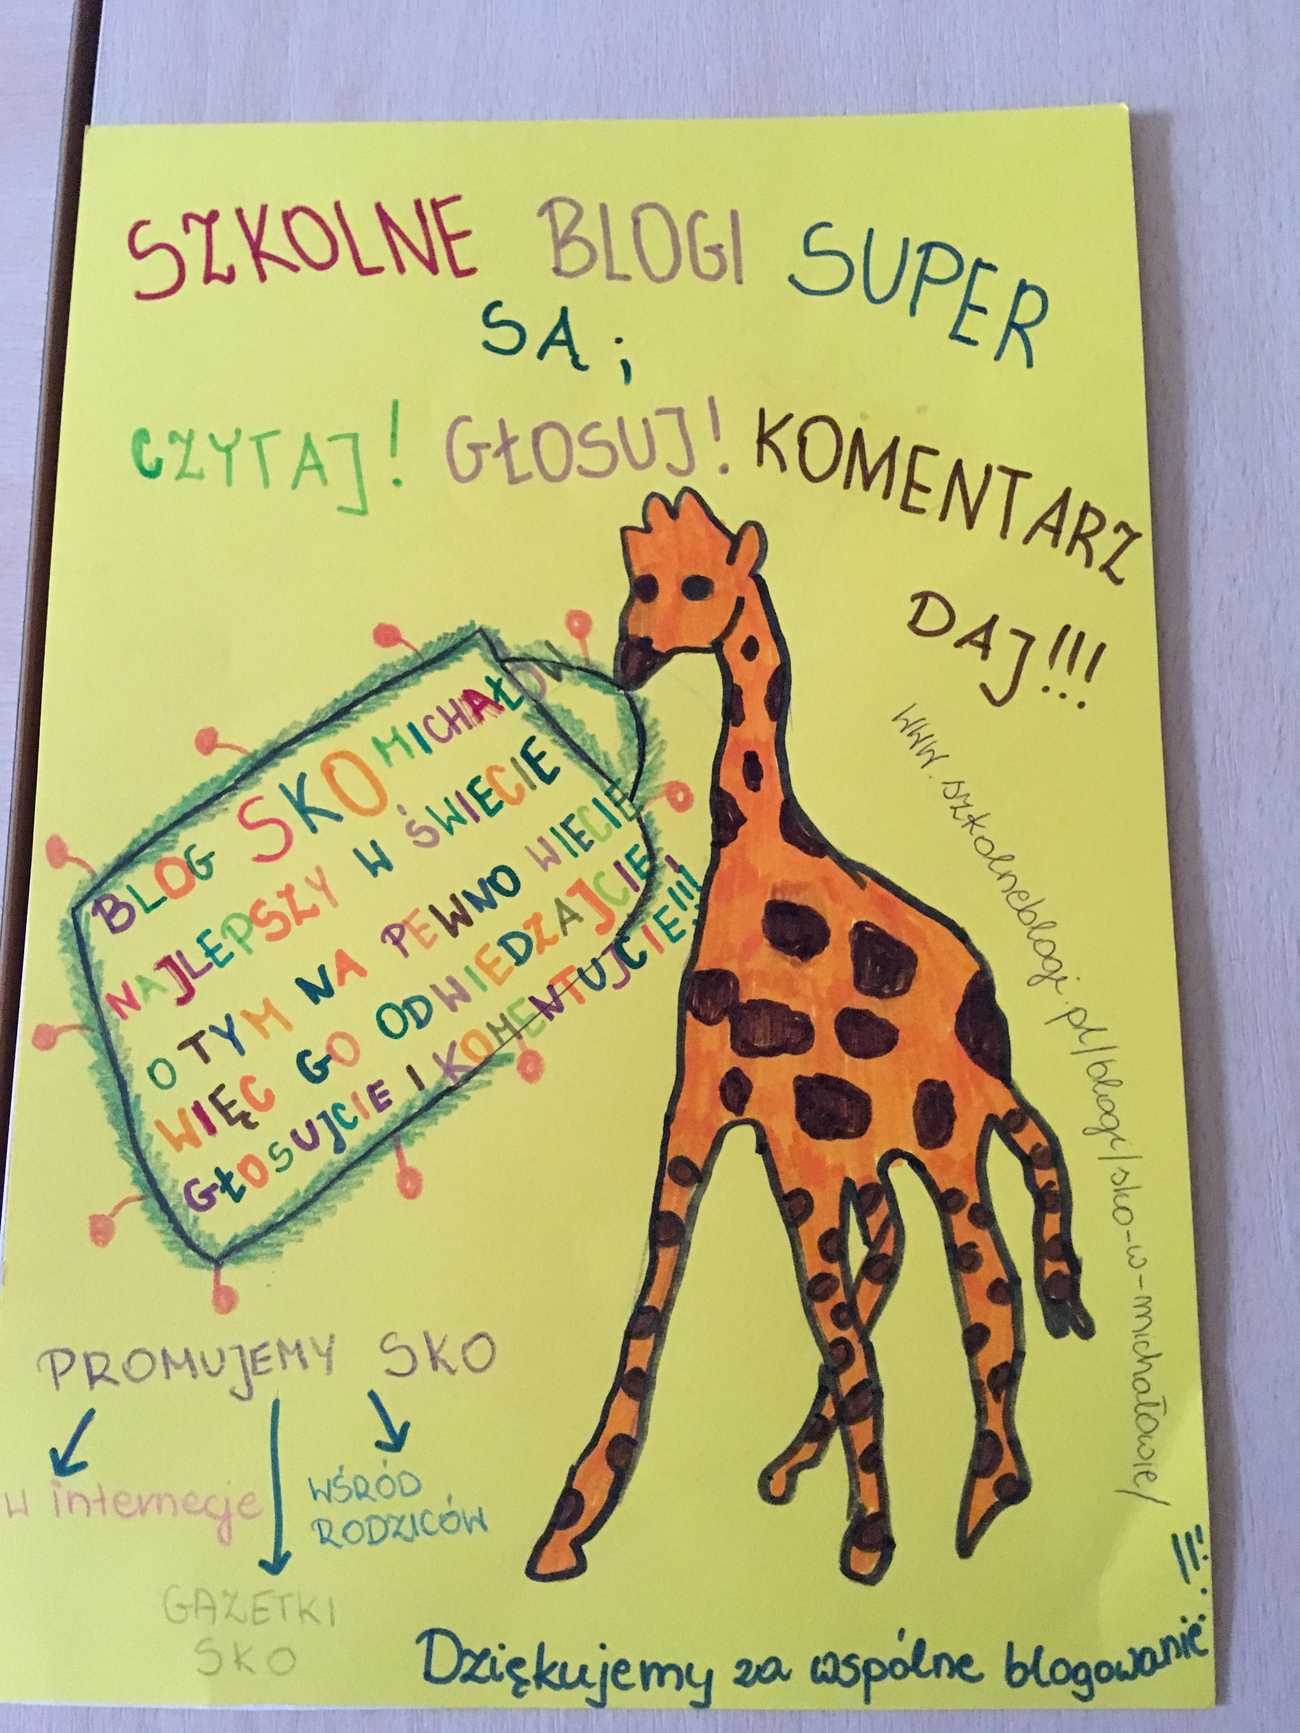 SZKOLNE BLOGI SUPER
SĄ;
CZYTAJ! GŁOSUJ! KOMENTARZ
DAJ!!!
www.szkolneblogi.pl/blogi/sko-w-michałowie/
BLOG SKO MICHAŁÓW
NAJLEPSZY W ŚWIECIE
O TYM NA PEWNO WIECIE
WIĘC GO ODWIEDZAJCIE,
GŁOSUJCIE I KOMENTUJCIE!!!
PROMUJEMY SKO
w internecje
WŚRÓD
RODZICÓW
GAZETKI
SKO
Dziękujemy za wspólne blogowanie!!!